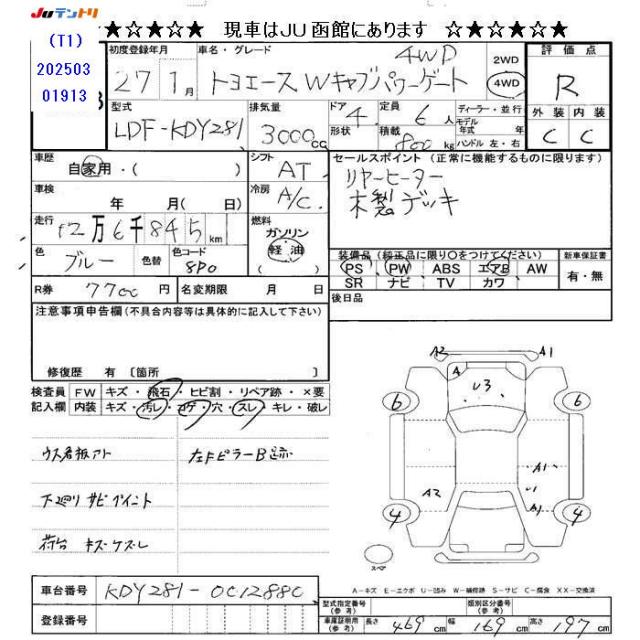 JUテントリ
★☆★☆★ 現車はJU函館にあります ☆★☆★☆★
(T1)
202503
01913
初度登録年月 27 1月
車名・グレード トヨエース Wキャブパワーゲート 4WD
2WD
4WD
評価点
R
外装 内装
C C
型式 LDF-KDY281
排気量 3000cc
ドア 4
形状
定員 6人
積載 800kg
ディーラー・並行
モデル年式 年式
ハンドル 左・右
車歴 自家用・( )
シフト AT
セールスポイント (正常に機能するものに限ります)
リヤーヒーター
木製デッキ
車検 年 月( 日)
冷房 A/C
走行 12万6千845km
燃料 ガソリン
軽油
色 ブルー
色替
色コード 8P0
装備品 (純正品に限り○をつけてください)
PS PW ABS エアB AW
SR ナビ TV カワ
新車保証書
有・無
R券 7700円
名変期限 月 日
後日品
注意事項申告欄 (不具合内容等は具体的に記入して下さい)
修復歴 有 〔箇所 〕
検査員記入欄
FW キズ・飛石・ヒビ割・リペア跡・×要
内装 キズ・汚レ・コゲ・穴・スレ・キレ・破レ
下廻り サビ ペイント
荷台 キズ・ケズレ
A2 A1
A
U3
6 6
A1
A2
A1
4 4
スペア
A-キズ E-エクボ U-凹み W-補修跡 S-サビ C-腐食 XX-交換済
車台番号 KDY281-0012880
登録番号
型式指定番号 (参考)
類別区分番号 (参考)
車庫証明用 (参考) 長さ 469cm 幅 169cm 高さ 197cm